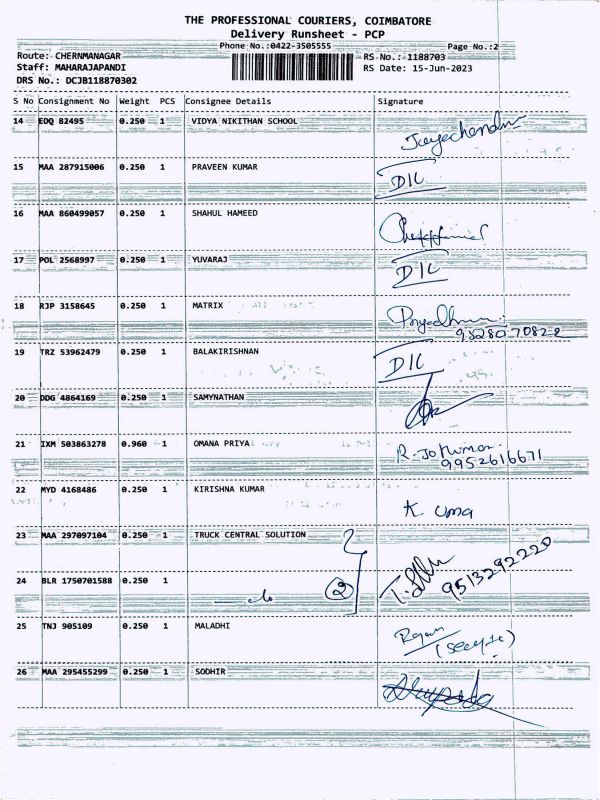 THE PROFESSIONAL COURIERS, COIMBATORE
Delivery Runsheet - PCP
Phone No.:0422-3505555 Page No.:2
Route: CHERNMANAGAR RS No.: 1188703
Staff: MAHARAJAPANDI RS Date: 15-Jun-2023
DRS No.: DCJB118870302
S No Consignment No Weight PCS Consignee Details Signature
14 EDQ 82495 0.250 1 VIDYA NIKITHAN SCHOOL
Jayachandra
15 MAA 287915006 0.250 1 PRAVEEN KUMAR
DIL
16 MAA 860499057 0.250 1 SHAHUL HAMEED
17 POL 2568997 0.250 1 YUVARAJ
DIL
18 RJP 3158645 0.250 1 MATRIX
19 TRZ 53962479 0.250 1 BALAKIRISHNAN
DIL
20 DDG 4864169 0.250 1 SAMYNATHAN
21 IXM 503863278 0.960 1 OMANA PRIYA
9952616671
22 MYD 4168486 0.250 1 KIRISHNA KUMAR
K Uma
23 MAA 297097104 0.250 1 TRUCK CENTRAL SOLUTION
24 BLR 1750701588 0.250 1
2 9513292220
25 TNJ 905109 0.250 1 MALADHI
26 MAA 295455299 0.250 1 SODHIR